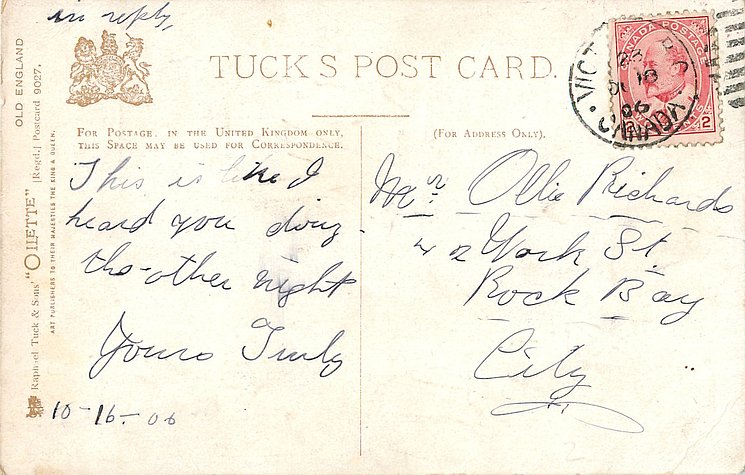 in reply,
TUCK'S POST CARD.
FOR POSTAGE, IN THE UNITED KINGDOM ONLY,
THIS SPACE MAY BE USED FOR CORRESPONDENCE.
(FOR ADDRESS ONLY).
This is like I
heard you doing
the other night
Yours Truly
10-16-06
Mr. Ollie Richards
42 Work St
Rock Bay
City
OLD ENGLAND
Raphael Tuck & Sons' "OILETTE" [Regd.] Postcard 9027.
ART PUBLISHERS TO THEIR MAJESTIES THE KING & QUEEN.
CANADA POSTAGE
2 CENTS 2
VICT
18
06
CANADA